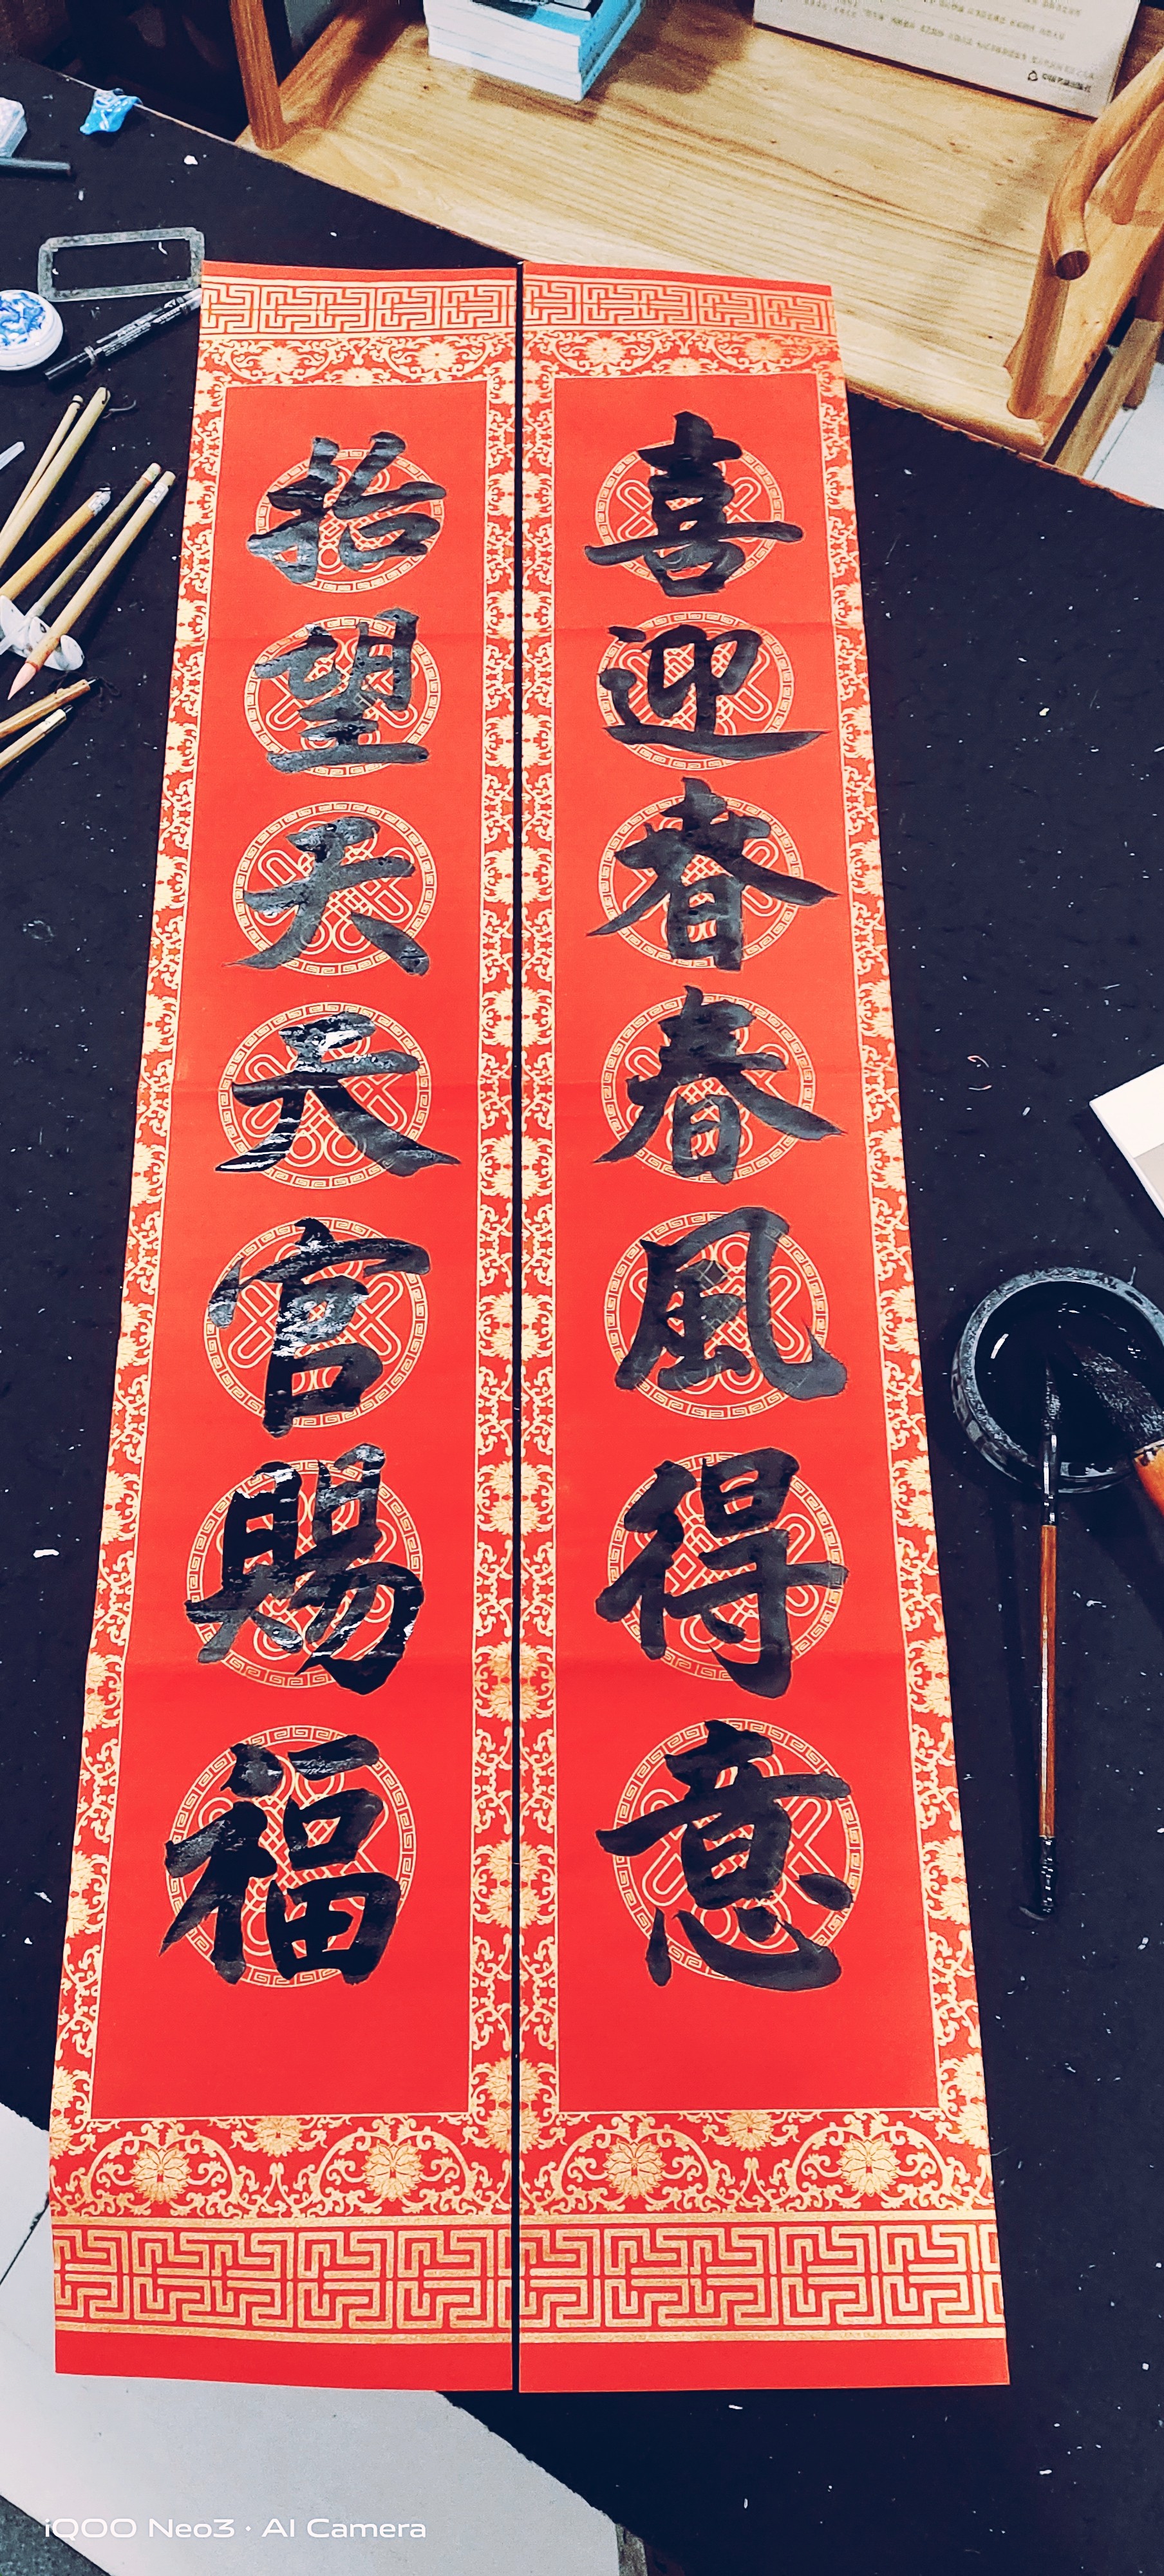 喜迎春春風得意
抬望天天官賜福
iQOO Neo3 · AI Camera